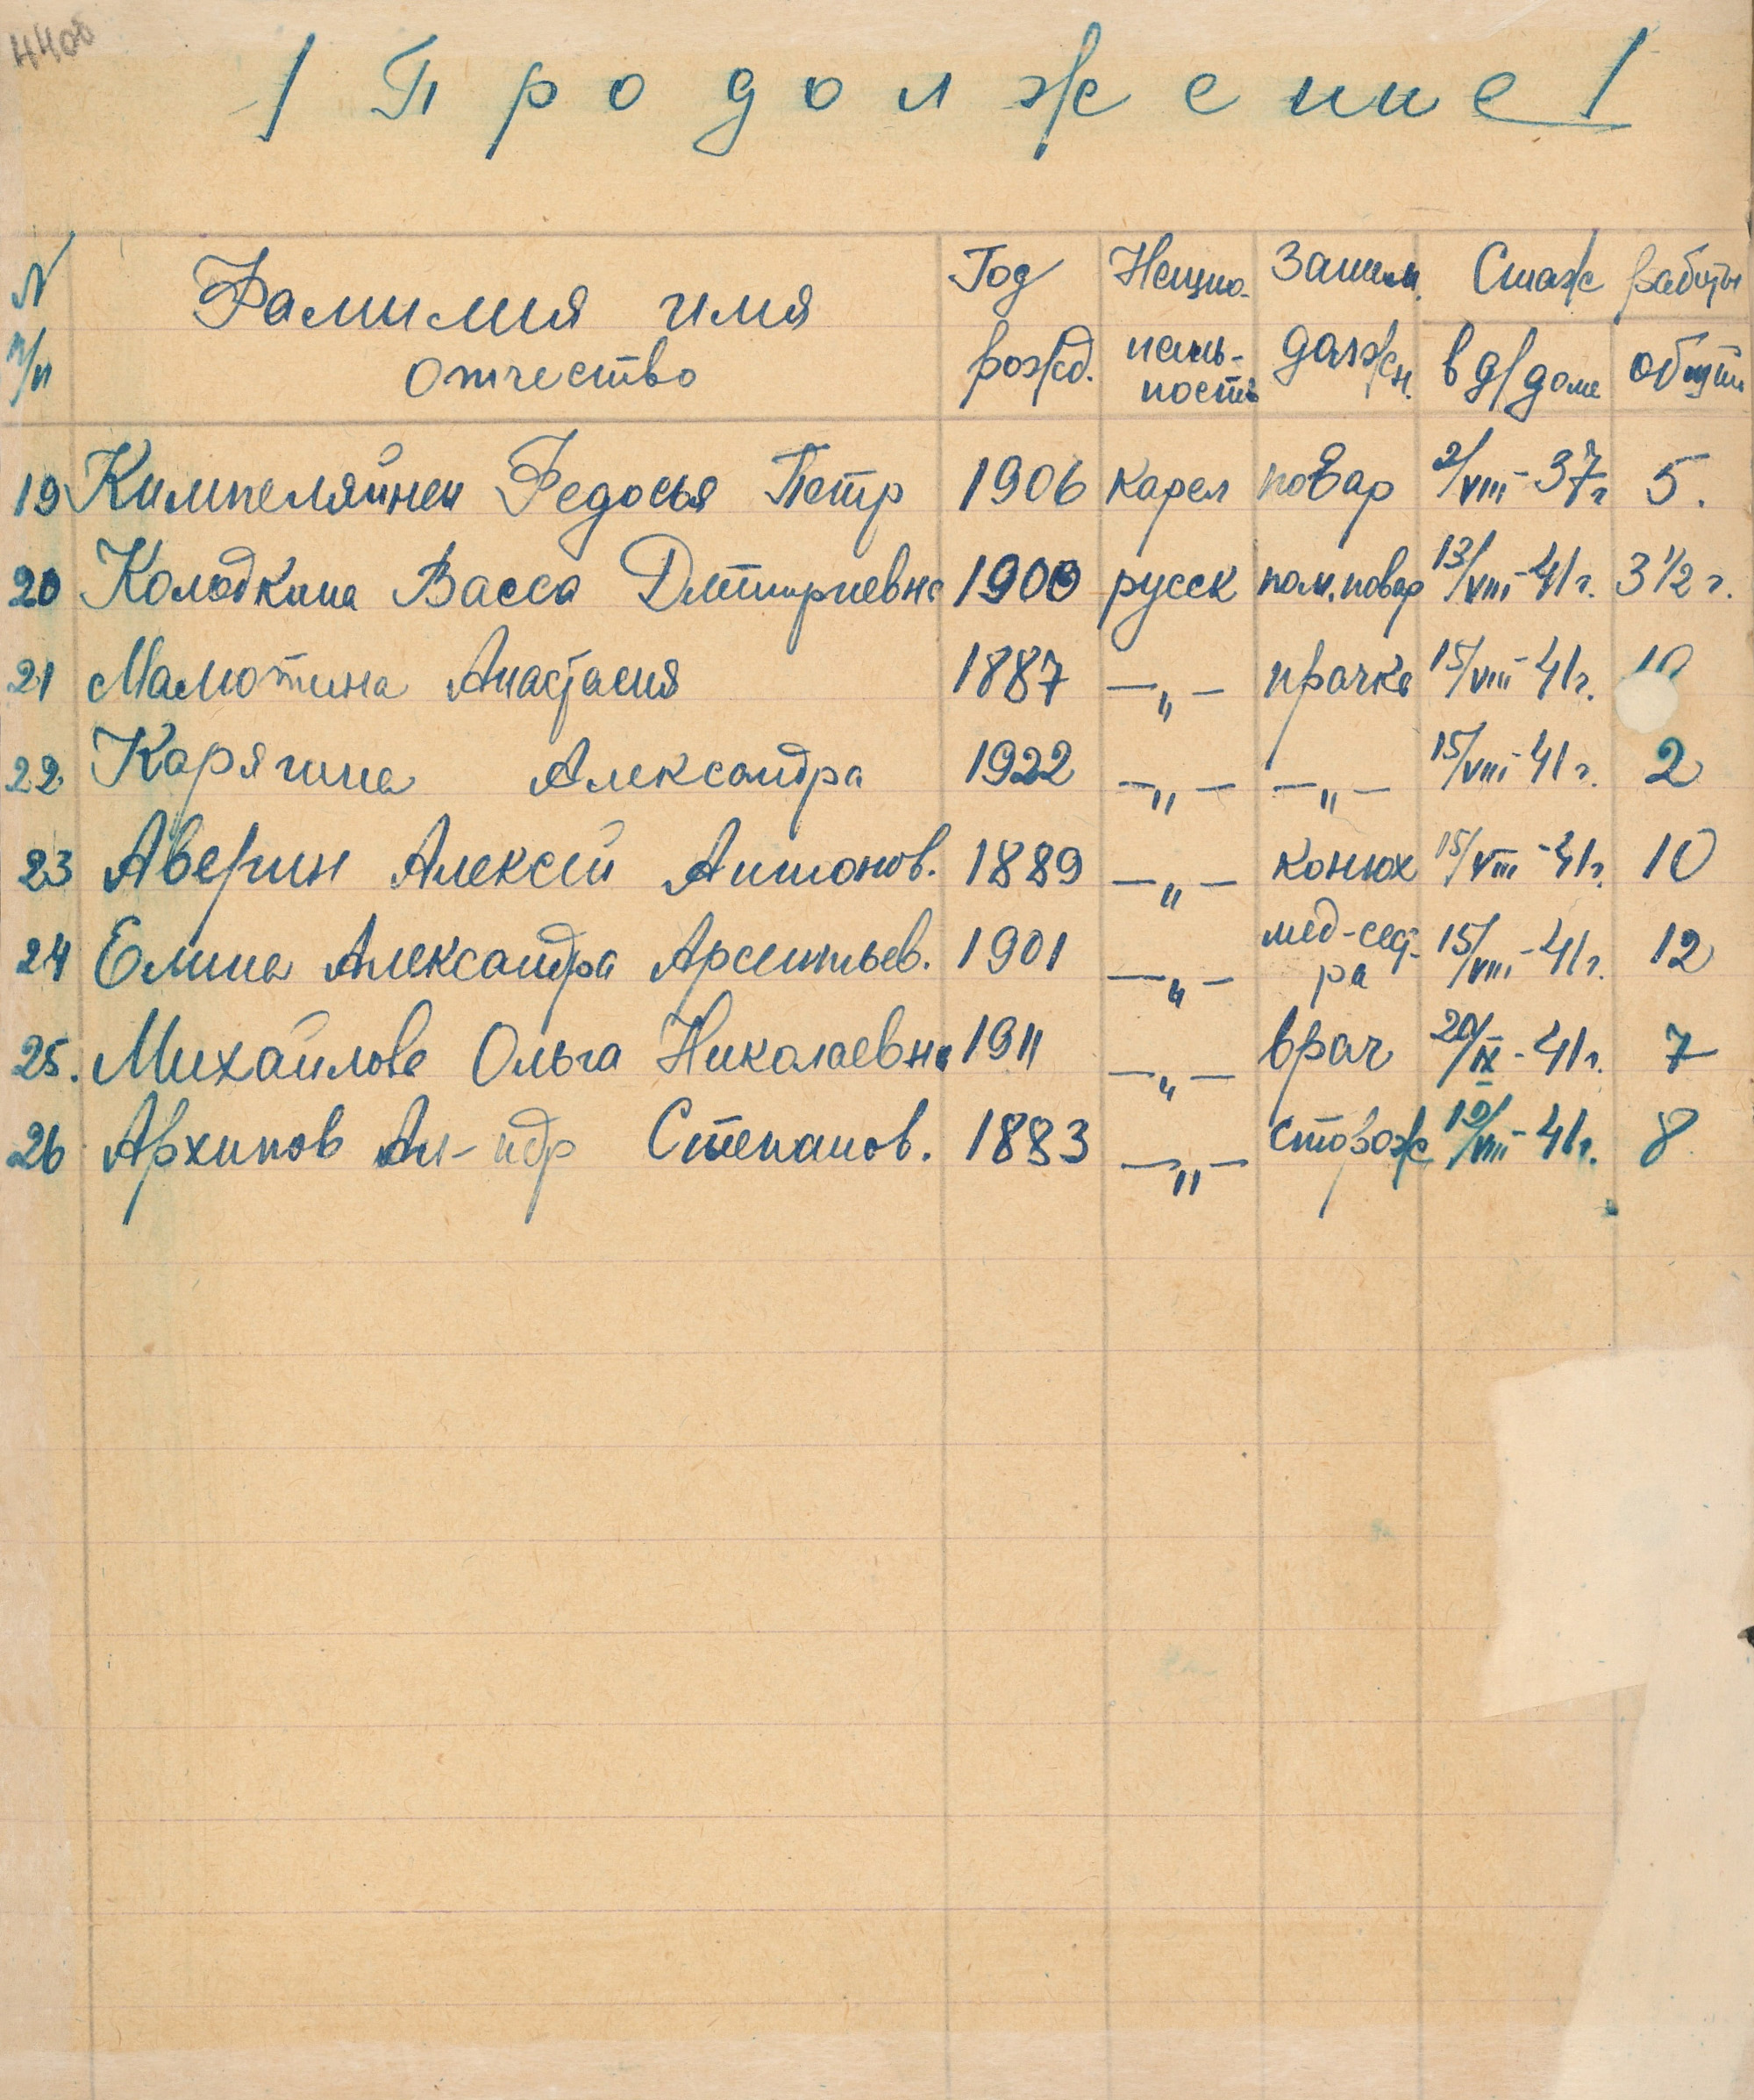 4400
/ Продолжение /
N Фамилия имя Год Нацио- Заним. Стаж работы
п/п отчество рожд. наль- должн. в д/доме общий
ность
19 Кимпеляйнен Федосья Петр 1906 карел повар 2/VIII-37г 5.
20 Колодкина Васса Дмитириевна 1900 русск пом.повар 13/VIII-41г. 3 1/2 г.
21 Малютина Анастасия 1887 —„— прачка 15/VIII-41г. 10
22. Карягина Александра 1922 —„— —„— 15/VIII-41г. 2
23 Аверин Алексей Антонов. 1889 —„— конюх 15/VIII-41г. 10
24 Елина Александра Арсентьев. 1901 —„— мед-сест- 15/VIII-41г. 12
ра
25. Михайлова Ольга Николаевна 1911 —„— врач 20/IX-41г. 7
26 Архипов Ал-ндр Степанов. 1883 —„— сторож 12/VIII-41г. 8